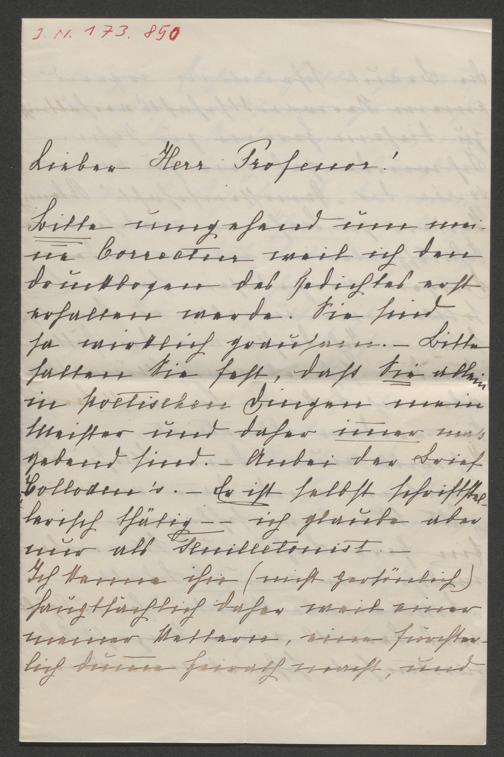 J. N. 173.850
Lieber Herr Professor!
Bitte umgehend um mei-
ne Correctur weil ich den
Druckbogen des Gedichtes erst
erhalten werde. Sie sind
ja wirklich grausam. – Bitte
halten Sie fest, daß Sie allein
in poetischen Dingen mein
Meister und daher immer mas
gebend sind. – Anbei der Brief
– Er ist selbst schriftstel-
lerisch thätig – – ich glaube aber
nur als Feuilletonist. –
Ich kenne ihn (nicht persönlich)
hauptsächlich daher weil einer
meiner Vettern, eine fürchter-
lich dumme Heirath macht, und